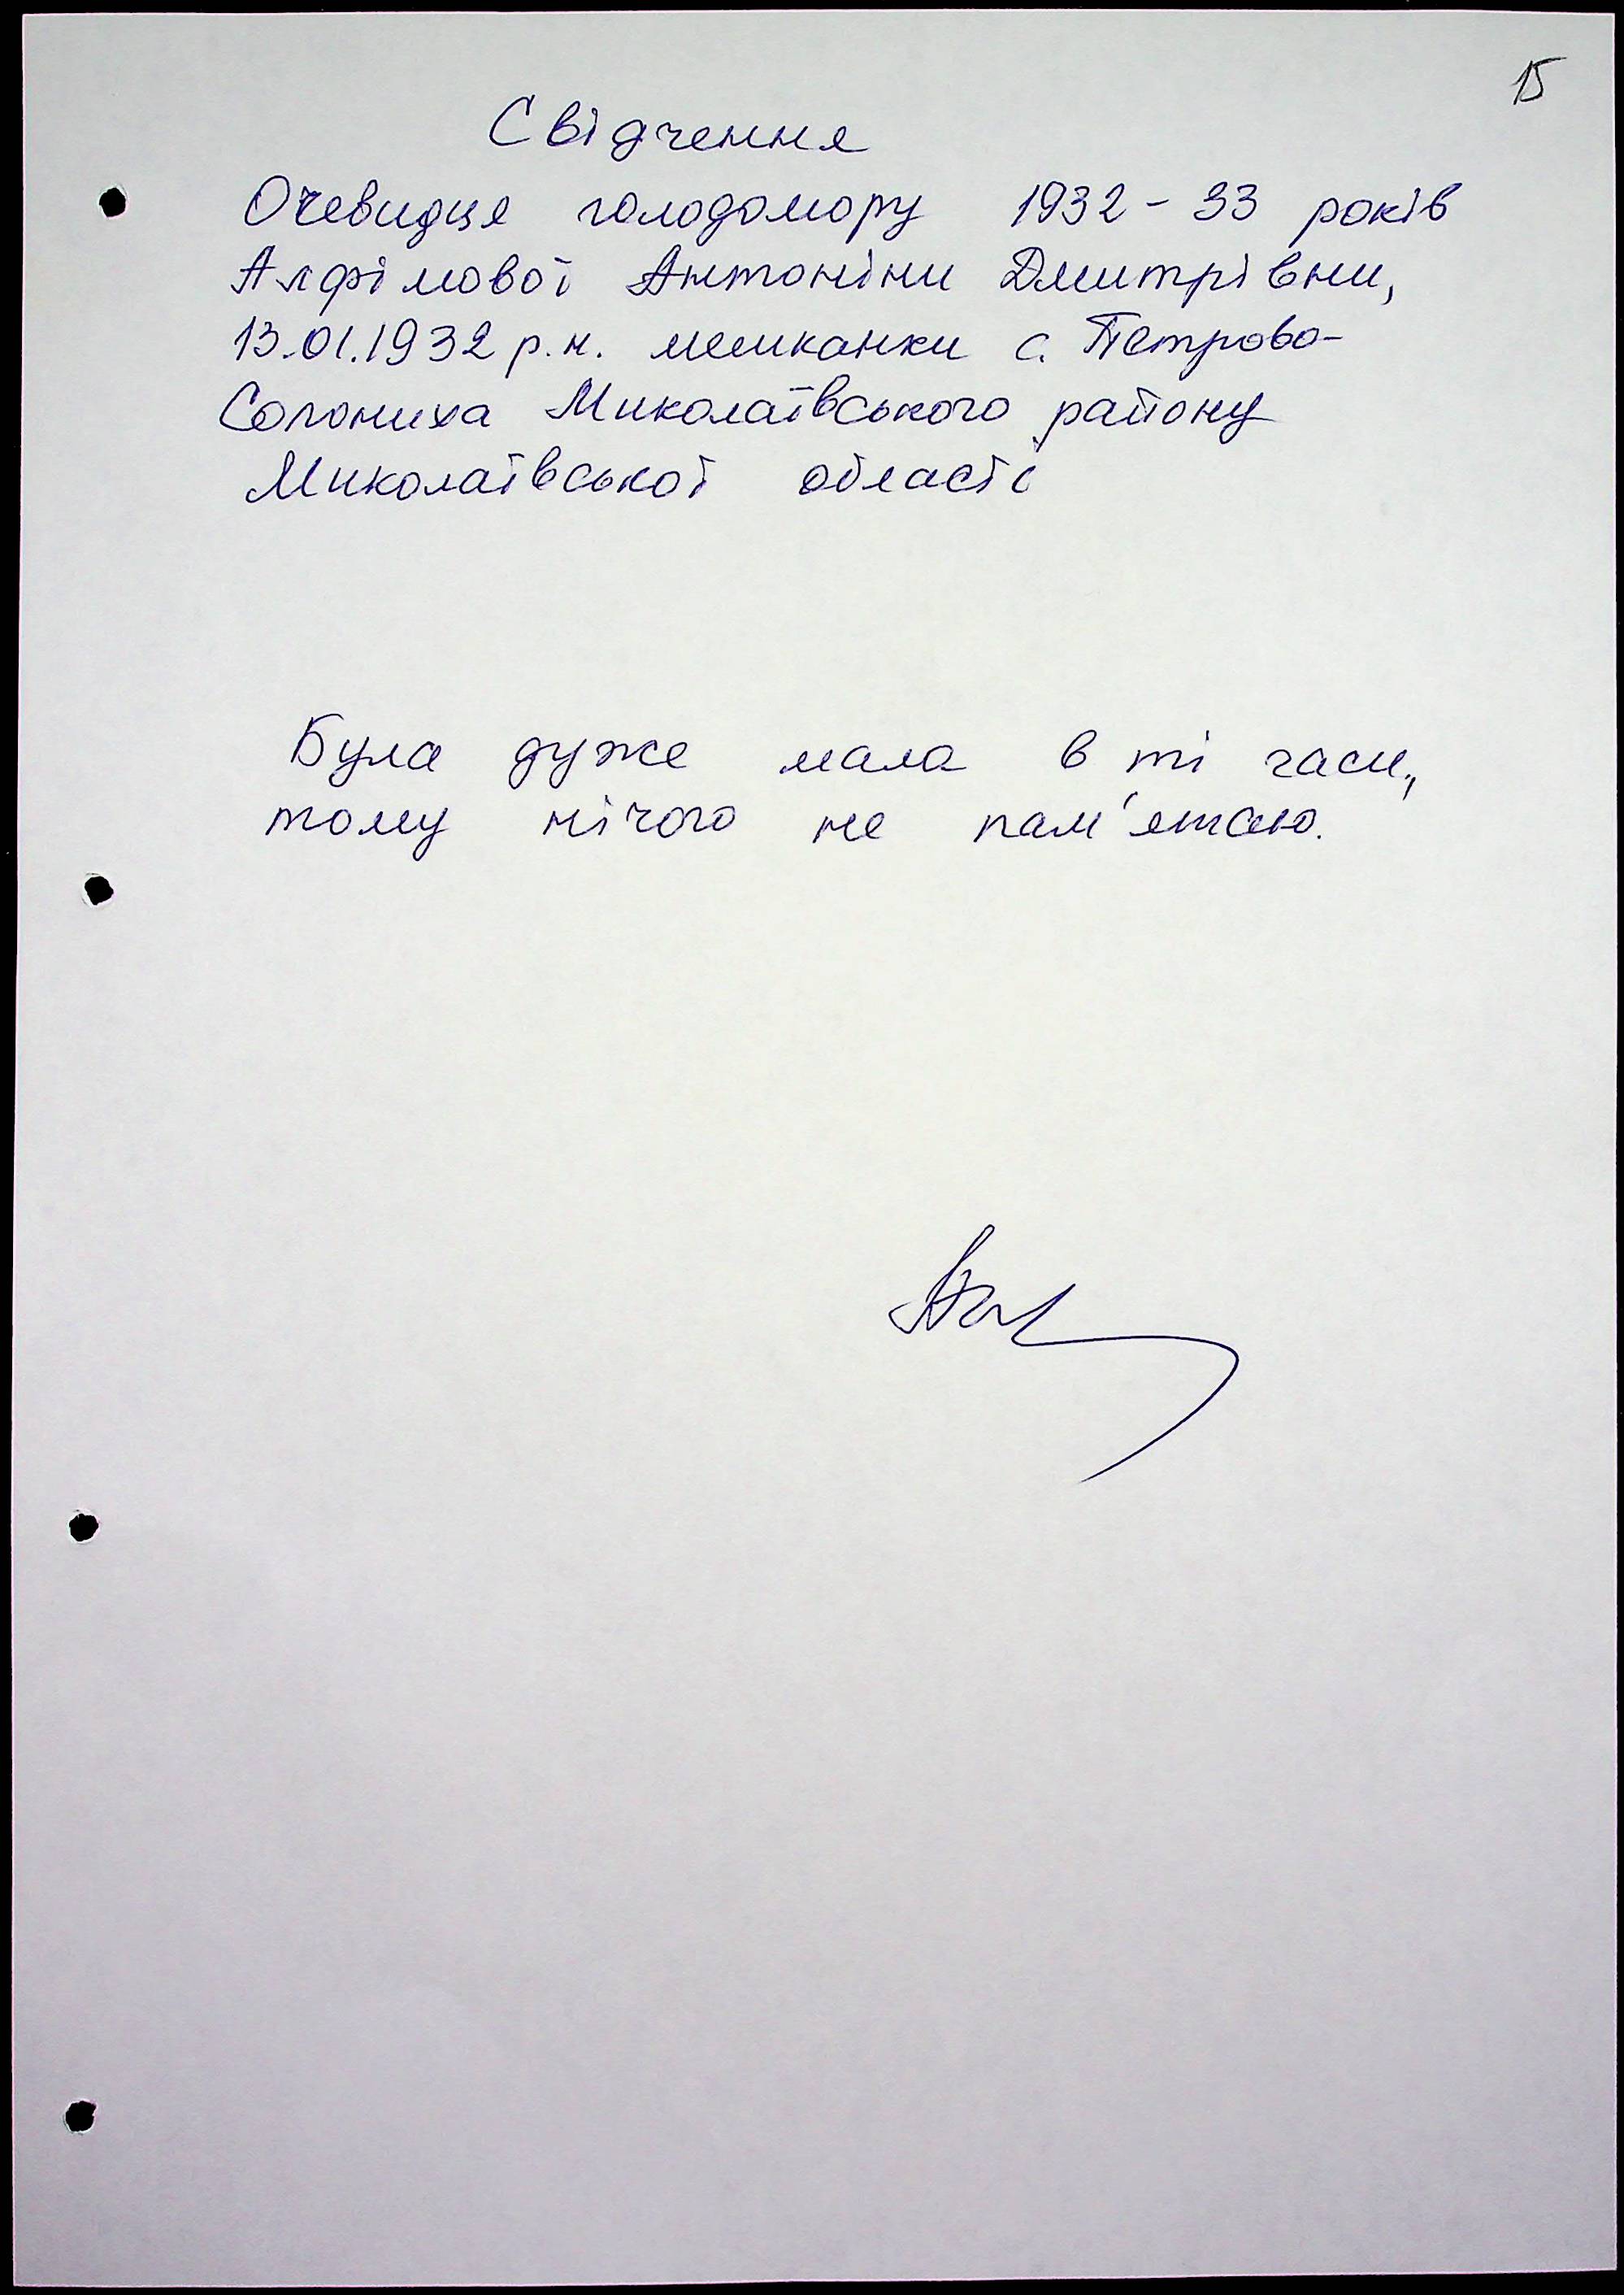 15
Свідчення
Очевидця голодомору 1932-33 років
Алфімової Антоніни Дмитрівни,
13.01.1932 р.н. мешканки с. Петрово-
Солониха Миколаївського району
Миколаївської області
Була дуже мала в ті часи,
тому нічого не пам'ятаю.